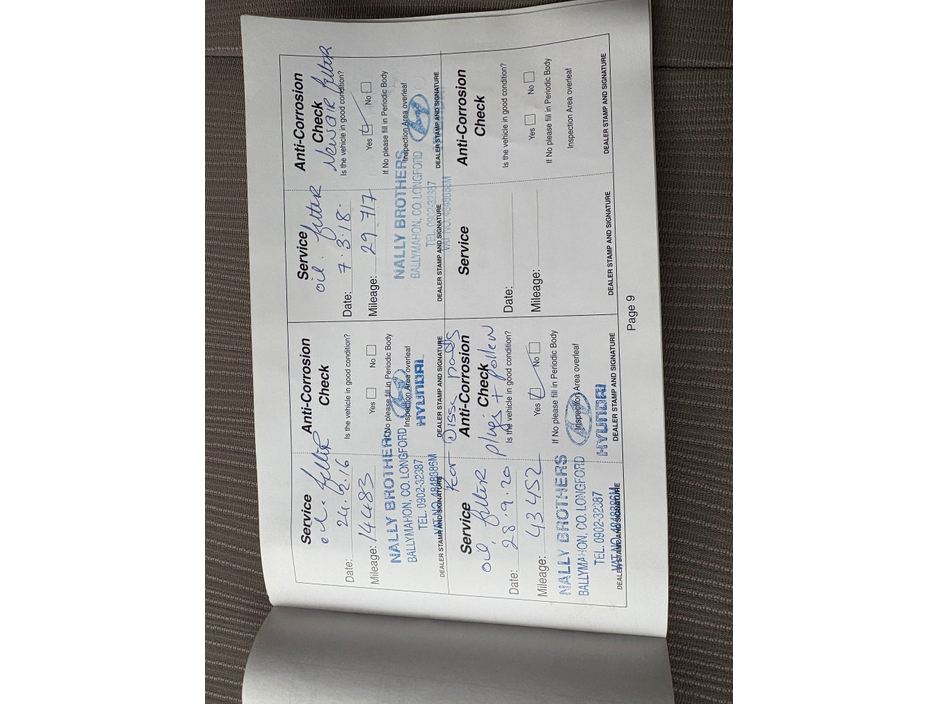 Service
oil. filter
Date: 24.6.16
Mileage: 14483
NALLY BROTHERS
BALLYMAHON, CO. LONGFORD
TEL. 0902-32387
VAT NO. 4848386M
DEALER STAMP AND SIGNATURE
Anti-Corrosion
Check
Is the vehicle in good condition?
Yes No
If No please fill in Periodic Body
Inspection Area overleaf
HYUNDAI
DEALER STAMP AND SIGNATURE
Service
oil. filter
Date: 7.3.18.
Mileage: 29717
NALLY BROTHERS
BALLYMAHON, CO. LONGFORD
TEL. 0902-32387
VAT NO. 4848386M
DEALER STAMP AND SIGNATURE
Anti-Corrosion
Check
New air filter
Is the vehicle in good condition?
Yes No
If No please fill in Periodic Body
Inspection Area overleaf
DEALER STAMP AND SIGNATURE
Rear Disc pads
Service
oil, filter plugs + pollen
Date: 28.9.20
Mileage: 43452
NALLY BROTHERS
BALLYMAHON, CO. LONGFORD
TEL. 0902-32387
VAT NO. 4848386M
DEALER STAMP AND SIGNATURE
Anti-Corrosion
Check
Is the vehicle in good condition?
Yes No
If No please fill in Periodic Body
Inspection Area overleaf
HYUNDAI
DEALER STAMP AND SIGNATURE
Service
Date:
Mileage:
DEALER STAMP AND SIGNATURE
Anti-Corrosion
Check
Is the vehicle in good condition?
Yes No
If No please fill in Periodic Body
Inspection Area overleaf
DEALER STAMP AND SIGNATURE
Page 9